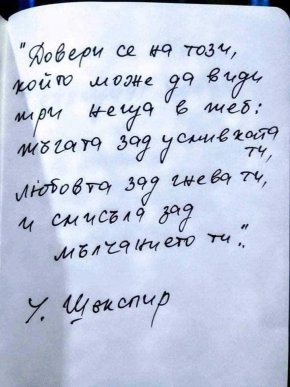 "Довери се на този,
който може да види
три неща в теб:
тъгата зад усмивката
ти,
любовта зад гнева ти,
и смисъла зад
мълчанието ти".
У. Шекспир